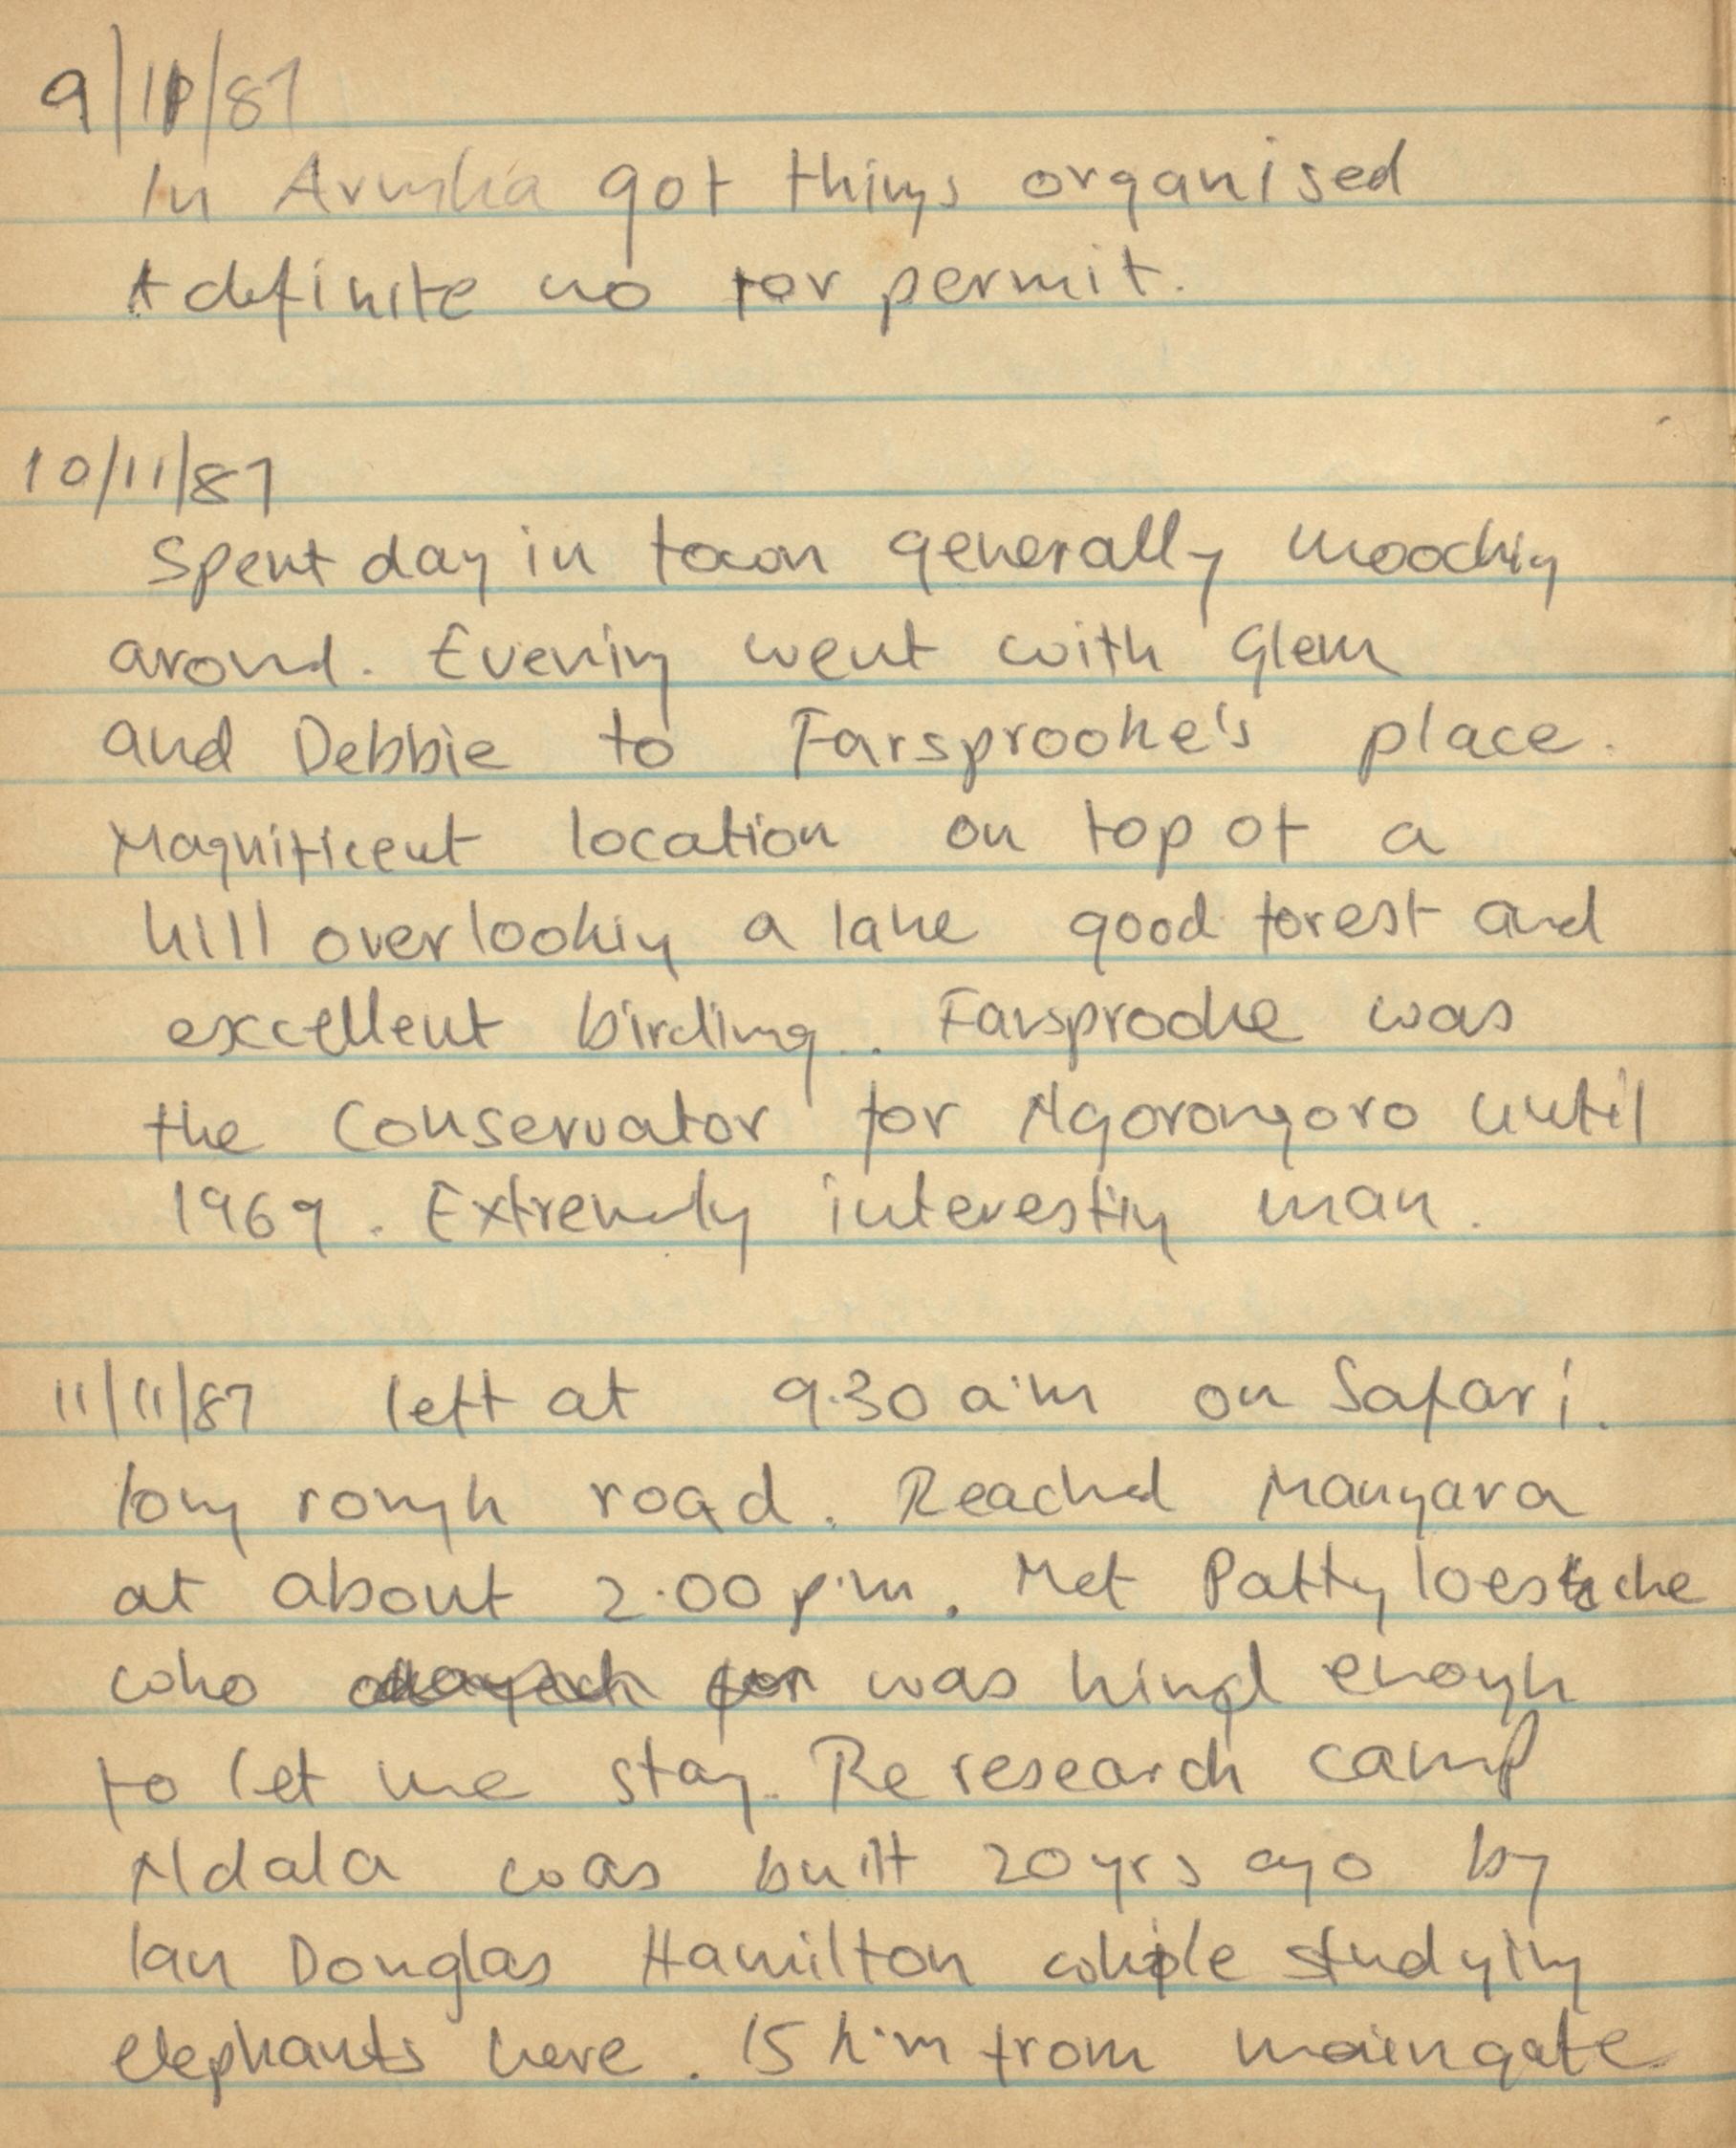 9/11/87
In Arusha got things organised
A definite no for permit.
10/11/87
Spent day in town generally mooching
around. Evening went with Glen
and Debbie to Farsprooke's place.
Magnificent location on top of a
hill overlooking a lake good forest and
excellent birding.. Farsprooke was
the Conservator for Ngorongoro until
1969. Extremely interesting man.
11/11/87 left at 9.30 a.m on Safari.
long rough road. Reached Manyara
at about 2.00 p.m. Met Patty
who was kind enough
to let me stay. Re research camp
Ndala was built 20 yrs ago by
Ian Douglas Hamilton while studying
elephants here. 15 k.m from maingate